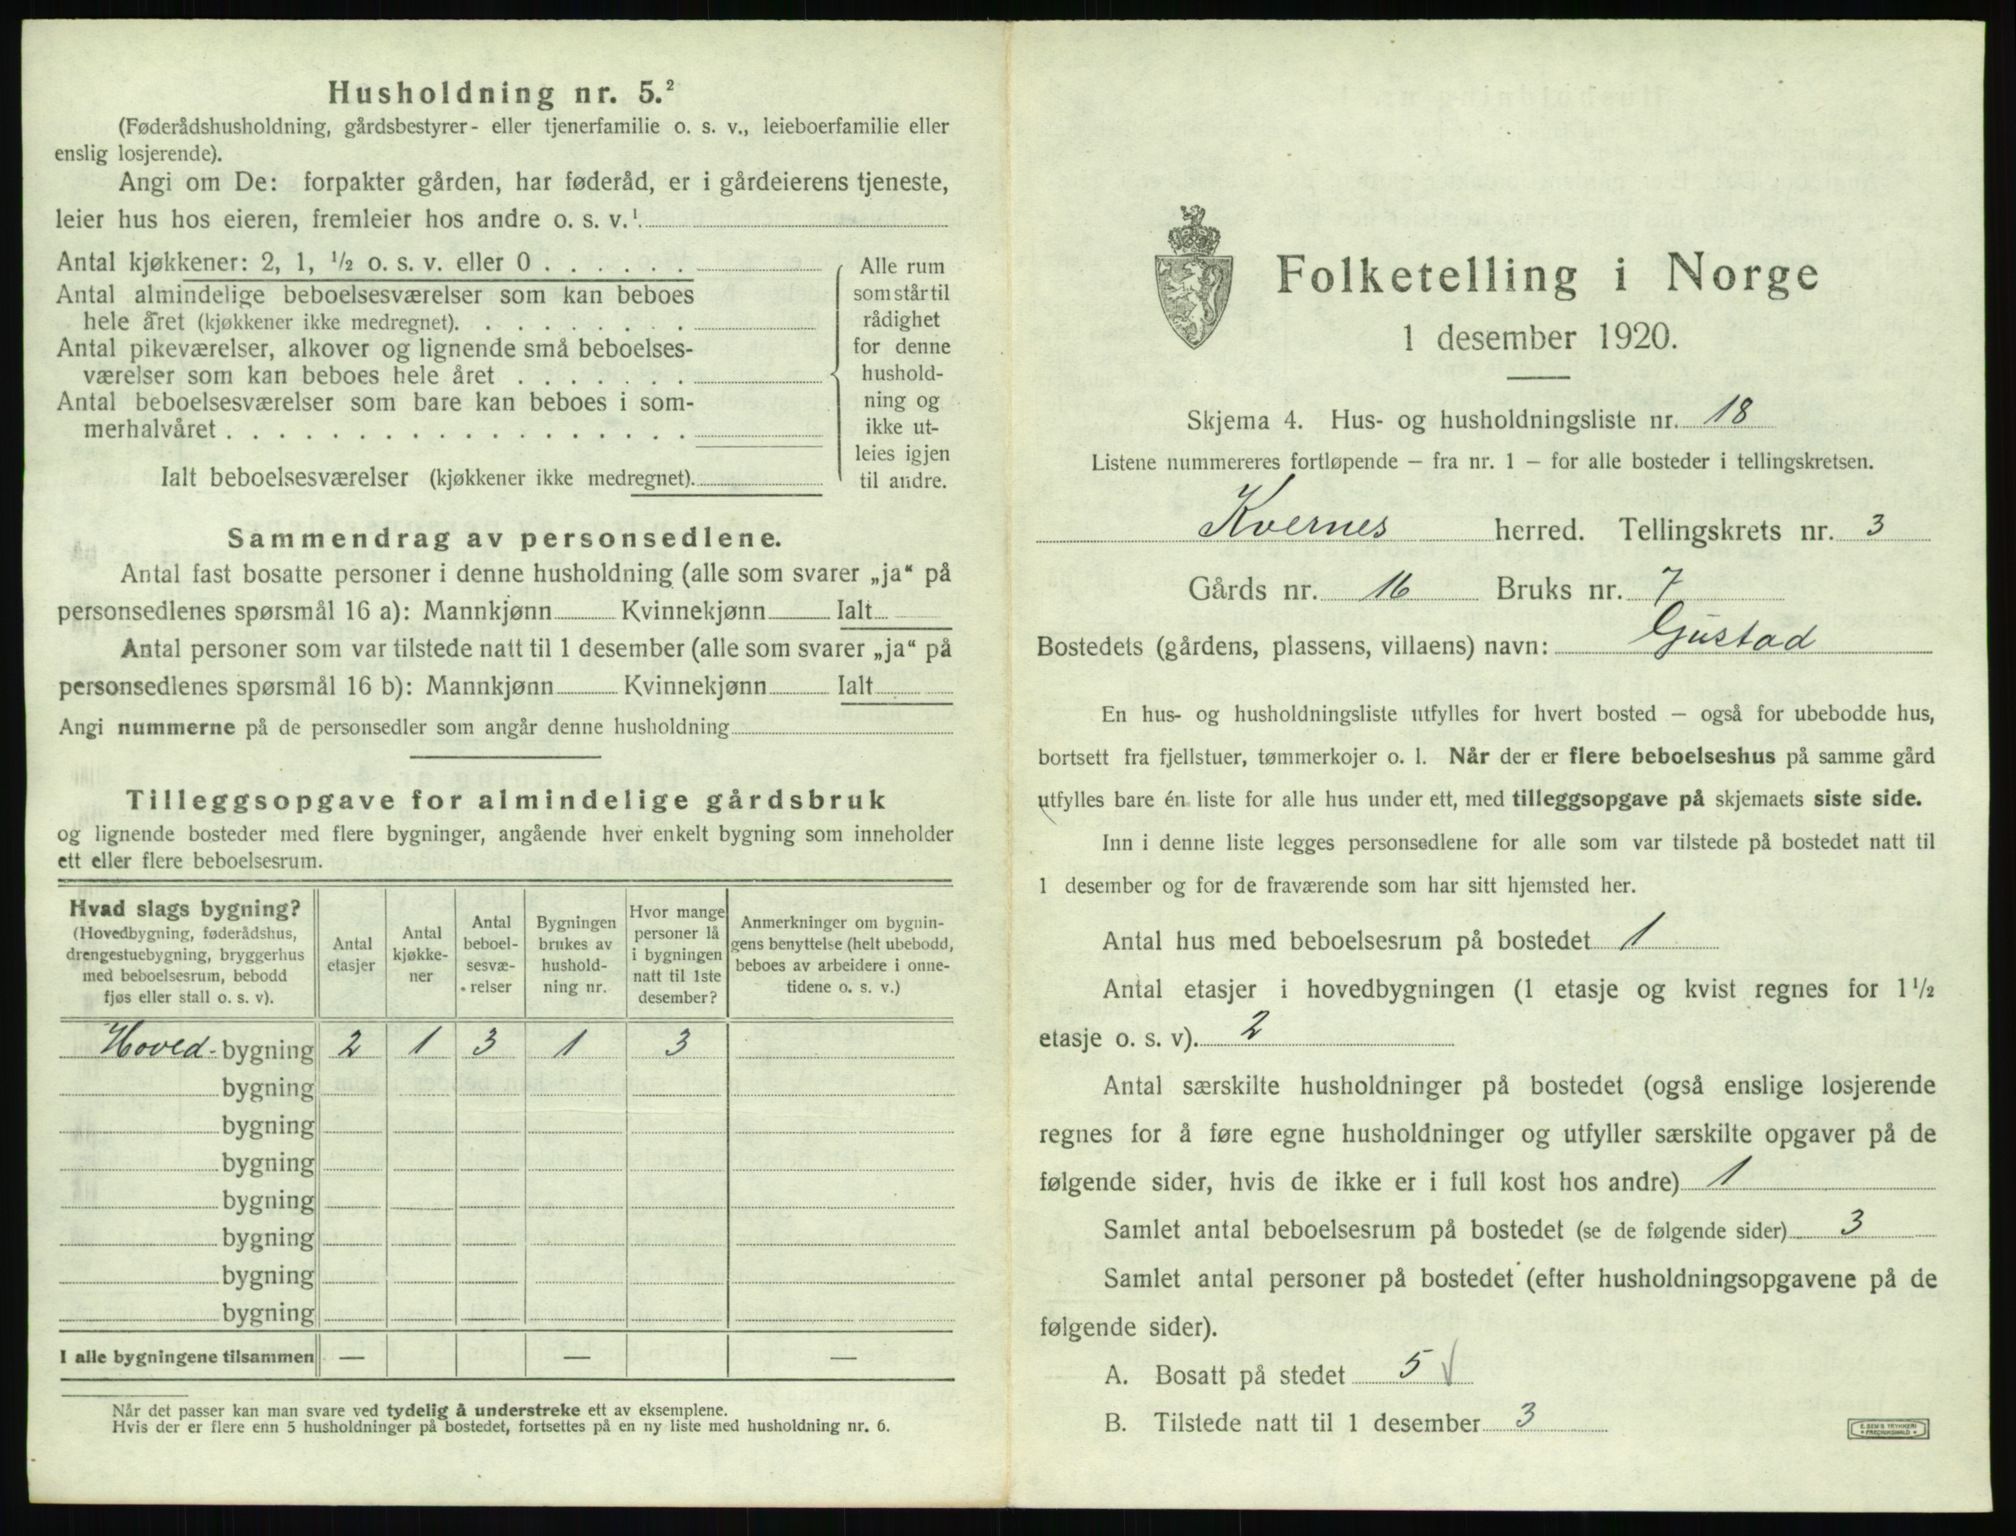 Husholdning nr. 5.²
(Føderådshusholdning, gårdsbestyrer- eller tjenerfamilie o. s. v., leieboerfamilie eller
enslig losjerende).
Angi om De: forpakter gården, har føderåd, er i gårdeierens tjeneste,
leier hus hos eieren, fremleier hos andre o. s. v.¹
Antal kjøkkener: 2, 1, ½ o. s. v. eller 0 . . . . . .
Antal almindelige beboelsesværelser som kan beboes
hele året (kjøkkener ikke medregnet). . . . . . . . .
Antal pikeværelser, alkover og lignende små beboelses-
værelser som kan beboes hele året . . . . . . .
Antal beboelsesværelser som bare kan beboes i som-
merhalvåret . . . . . . . . . . . . . . . . . .
Ialt beboelsesværelser (kjøkkener ikke medregnet).
Alle rum
som står til
rådighet
for denne
hushold-
ning og
ikke ut-
leies igjen
til andre.
Sammendrag av personsedlene.
Antal fast bosatte personer i denne husholdning (alle som svarer „ja“ på
personsedlenes spørsmål 16 a): Mannkjønn Kvinnekjønn Ialt
Antal personer som var tilstede natt til 1 desember (alle som svarer „ja“ på
personsedlenes spørsmål 16 b): Mannkjønn Kvinnekjønn Ialt
Angi nummerne på de personsedler som angår denne husholdning
Tilleggsopgave for almindelige gårdsbruk
og lignende bosteder med flere bygninger, angående hver enkelt bygning som inneholder
ett eller flere beboelsesrum.
Hvad slags bygning?
(Hovedbygning, føderådshus,
drengestuebygning, bryggerhus
med beboelsesrum, bebodd
fjøs eller stall o. s. v).
Antal
etasjer
Antal
kjøkke-
ner
Antal
beboel-
sesvæ-
relser
Bygningen
brukes av
hushold-
ning nr.
Hvor mange
personer lå
i bygningen
natt til 1ste
desember?
Anmerkninger om bygnin-
gens benyttelse (helt ubebodd,
beboes av arbeidere i onne-
tidene o. s. v.)
Hoved- bygning 2 1 3 1 3
bygning
bygning
bygning
bygning
bygning
bygning
bygning
I alle bygningene tilsammen — — —
Når det passer kan man svare ved tydelig å understreke ett av eksemplene.
Hvis der er flere enn 5 husholdninger på bostedet, fortsettes på en ny liste med husholdning nr. 6.
Folketelling i Norge
1 desember 1920.
Skjema 4. Hus- og husholdningsliste nr. 18
Listene nummereres fortløpende – fra nr. 1 – for alle bosteder i tellingskretsen.
Kvernes herred. Tellingskrets nr. 3
Gårds nr. 16 Bruks nr. 7
Bostedets (gårdens, plassens, villaens) navn: Gustad
En hus- og husholdningsliste utfylles for hvert bosted – også for ubebodde hus,
bortsett fra fjellstuer, tømmerkojer o. l. Når der er flere beboelseshus på samme gård
utfylles bare én liste for alle hus under ett, med tilleggsopgave på skjemaets siste side.
Inn i denne liste legges personsedlene for alle som var tilstede på bostedet natt til
1 desember og for de fraværende som har sitt hjemsted her.
Antal hus med beboelsesrum på bostedet 1
Antal etasjer i hovedbygningen (1 etasje og kvist regnes for 1½
etasje o. s. v). 2
Antal særskilte husholdninger på bostedet (også enslige losjerende
regnes for å føre egne husholdninger og utfyller særskilte opgaver på de
følgende sider, hvis de ikke er i full kost hos andre) 1
Samlet antal beboelsesrum på bostedet (se de følgende sider) 3
Samlet antal personer på bostedet (efter husholdningsopgavene på de
følgende sider).
A. Bosatt på stedet 5 √
B. Tilstede natt til 1 desember 3
E. SEM'S TRYKKERI
FREDRIKSHALD